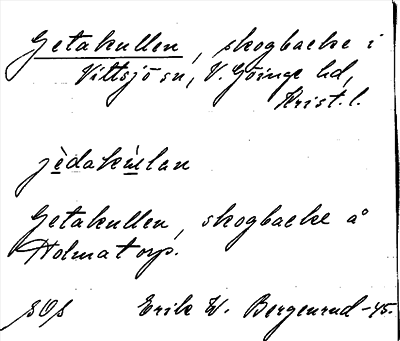 Getakullen, skogbacke i
Vittsjö sn, V. Göinge hd,
Krist. l.
Getakullen, skogbacke å
Holma torp.
SOS Erik W. Bergenrud -45.